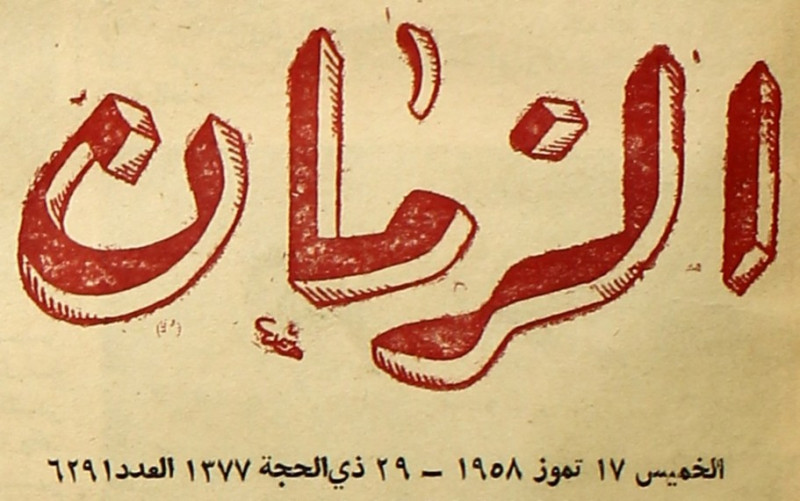 الزمان
الخميس ١٧ تموز ١٩٥٨ – ٢٩ ذي الحجة ١٣٧٧ العدد ٦٢٩١